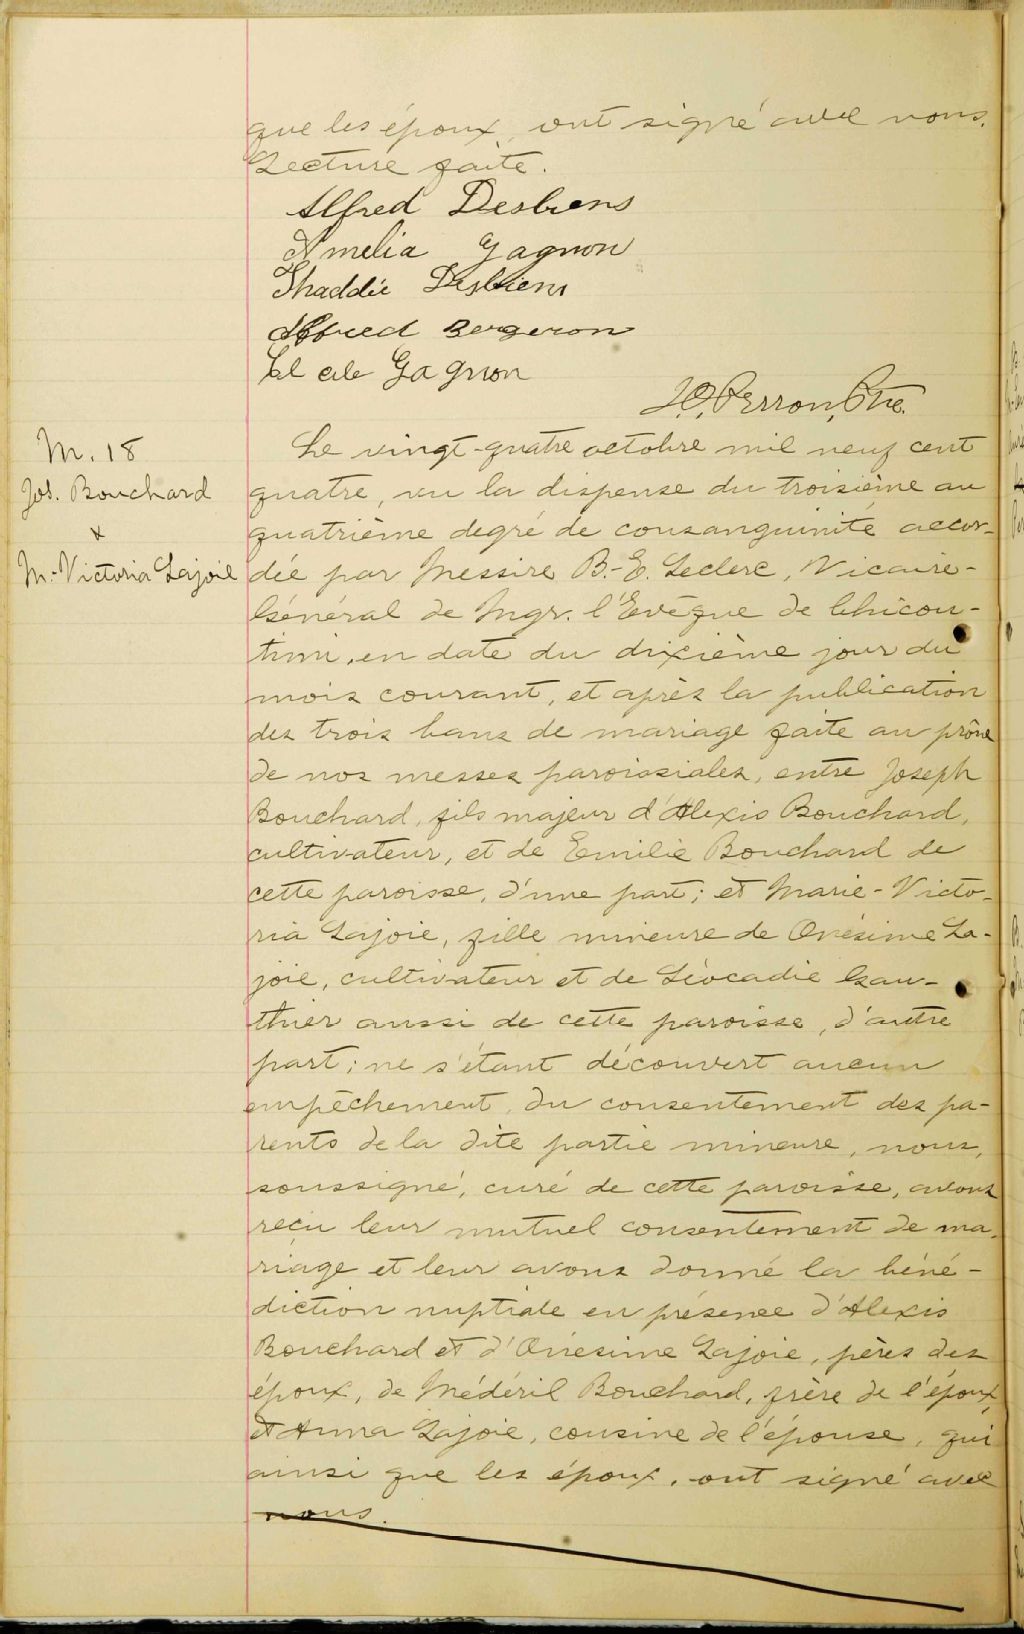 que les époux, ont signé avec nous.
Lecture faite.
Alfred Desbiens
Amelia Gagnon
Thaddée Desbiens
Alfred Bergeron
Gagnon
J.O. Perron, Ptre.
M. 18
Jos. Bouchard
x
M.-Victoria Lajoie
Le vingt-quatre octobre mil neuf cent
quatre, vu la dispense du troisième au
quatrième degré de consanguinité accor-
dée par Messire B.-E. Leclerc, Vicaire-
Général de Mgr. l'Evêque de Chicou-
timi, en date du dixième jour du
mois courant, et après la publication
des trois bans de mariage faite au prône
de nos messes paroissiales, entre Joseph
Bouchard, fils majeur d'Alexis Bouchard,
cultivateur, et de Emilie Bouchard de
cette paroisse, d'une part; et Marie-Victo-
ria Lajoie, fille mineure de Onésime La-
joie, cultivateur et de Léocadie Gau-
thier aussi de cette paroisse, d'autre
part; ne s'étant découvert aucun
empêchement, du consentement des pa-
rents de la dite partie mineure, nous,
soussigné, curé de cette paroisse, avons
reçu leur mutuel consentement de ma-
riage et leur avons donné la béné-
diction nuptiale en présence d'Alexis
Bouchard et d'Onésime Lajoie, pères des
époux, de Médéril Bouchard, frère de l'époux,
et Anna Lajoie, cousine de l'épouse, qui
ainsi que les époux, ont signé avec
nous.